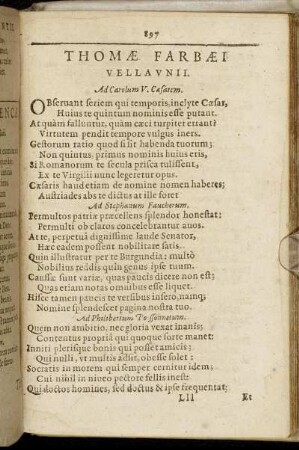 897
THOMÆ FARBÆI
VELLAVNII.
Ad Carolum V. Cæsarem.
OBseruant seriem qui temporis, inclyte Cæsar,
Huius te quintum nominis esse putant.
At quàm falluntur, quàm cæci turpiter errant?
Virtutem pendit tempore vulgus iners.
Gestorum ratio quod si sit habenda tuorum;
Non quintus, primus nominis huius eris,
Si Romanorum te secula prisca tulissent,
Ex te Virgilii nunc legeretur opus.
Cæsaris haud etiam de nomine nomen haberes;
Austriades abs te dictus at ille foret
Ad Stephanum Faucherum.
Permultos patriæ præcellens splendor honestat:
Permulti ob claros concelebrantur auos.
At te, perpetuâ dignissime laude Senator,
Hæc eadem possent nobilitare satis.
Quin illustratur per te Burgundia: multò
Nobilius reddis quin genus ipse tuum.
Caussæ sunt variæ, quas paucis dicere non est;
Quas etiam notas omnibus esse liquet.
Hisce tamen paucis te versibus insero, namq;
Nomine splendescet pagina nostra tuo.
Ad Philibertum
Quem non ambitio, nec gloria vexat inanis;
Contentus propriâ qui quoque sorte manet:
Inniti plerisque bonis qui posset amicis;
Qui nulli, vt multis adsit, obesse solet:
Socratis in morem qui semper cernitur idem;
Cui nihil in niueo pectore fellis inest:
Qui doctos homines, sed doctus & ipse frequentat;
Lll Et